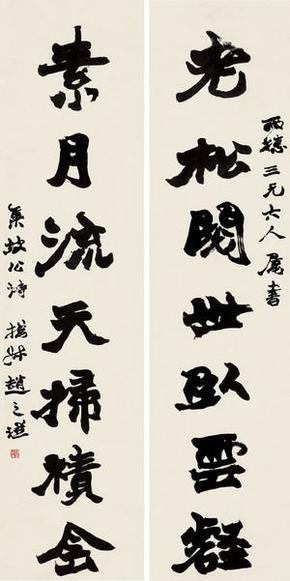 老松閱世臥雲壑
西三兄大人屬書
素月流天掃積侌
集坡公詩 撝叔趙之謙